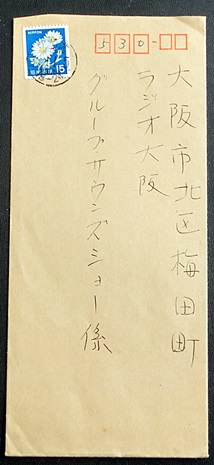 NIPPON
15
530-
大阪市北区梅田町
ラジオ大阪
グループサウンズショー係